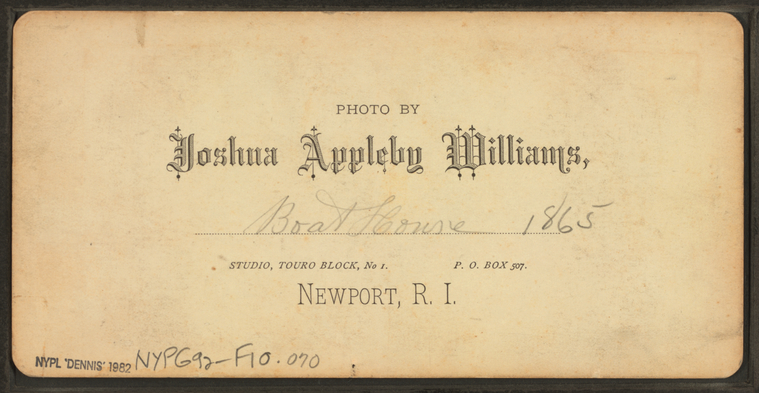 PHOTO BY
Joshua Appleby Williams,
Boat House 1865
STUDIO, TOURO BLOCK, No 1. P. O. BOX 507.
NEWPORT, R. I.
NYPL 'DENNIS' 1982 NYPG92-F10.070